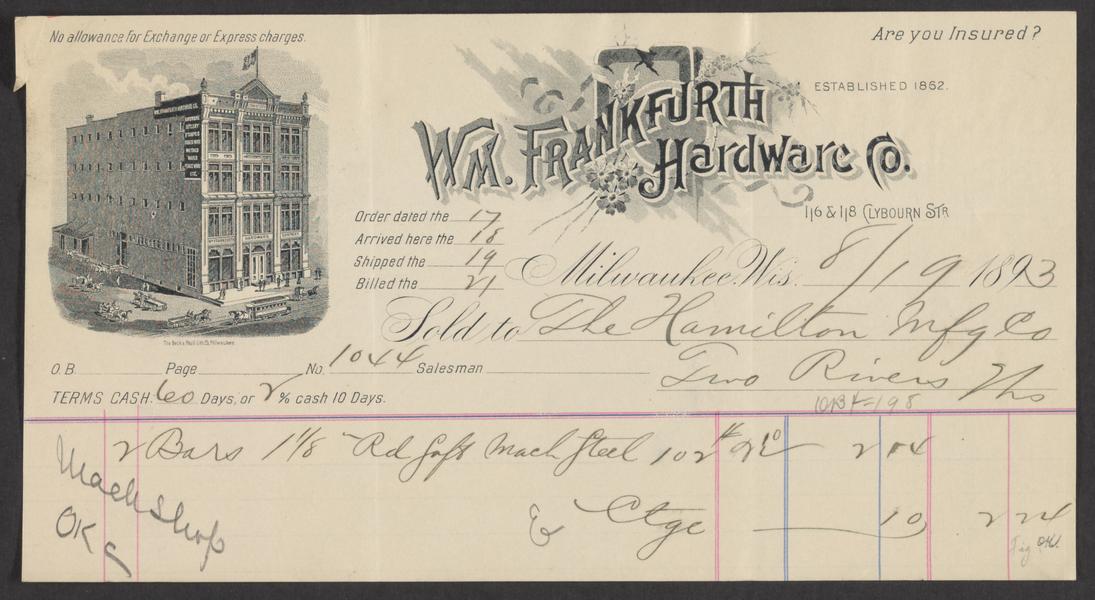 No allowance for Exchange or Express charges.
Are you Insured?
ESTABLISHED 1862.
WM. FRANKFURTH
Hardware Co.
116 & 118 CLYBOURN STR
Order dated the 17
Arrived here the 18
Shipped the 19
Billed the 21
Milwaukee, Wis. 8/19 1893
Sold to The Hamilton Mfg Co
Two Rivers Wis
O.B. Page No. 1044 Salesman
TERMS CASH: 60 Days, or 2 % cash 10 Days.
2 Bars 1 1/8 Rd Soft Mach Steel 102 # 2 04
& Ctge 10 2 14
Mach Shop
OK